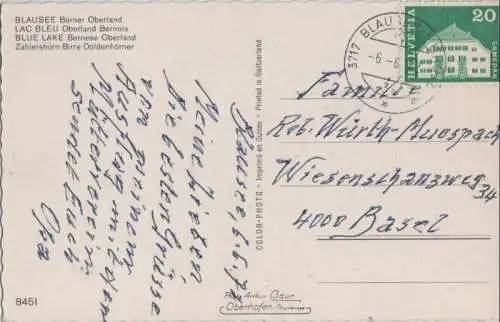 BLAUSEE Berner Oberland
LAC BLEU Oberland Bernois
BLUE LAKE Bernese Oberland
Zahlershorn-Birre-Doldenhörner
Blausee, 6.6.
Meine Lieben
die besten Grüsse
vom
Ausflug mit dem
sendet Euch
Opa
COLOR-PHOTO - Imprimé en Suisse - Printed in Switzerland
Photo Arthur Baur
Oberhofen-Thunersee
3717 BLAU
-6.-6.
HELVETIA 20
SAMEDAN
Familie
Rob. Würth-Auospach
Wiesenschanzweg 34
4000 Basel
8451